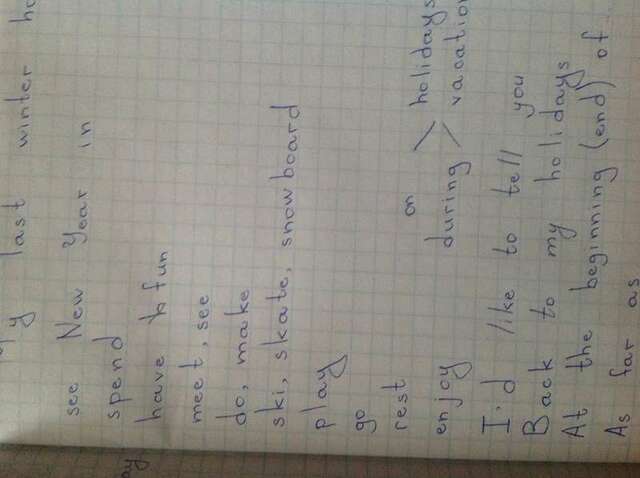 last winter
see New Year in
spend
have fun
meet, see
do, make
ski, skate, snowboard
play
go
rest on > holidays
enjoy during > vacation
I'd like to tell you
Back to my holidays
At the beginning (end) of
As far as